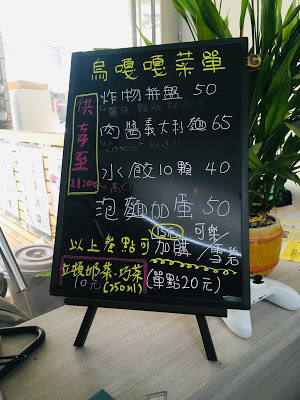 烏嘎嘎菜單
供
至
21:00
炸物拼盤 50
肉醬義大利麵 65
水餃10顆 40
泡麵加蛋 50
以上餐點可加購 15元 可樂/雪碧
(單點20元)
10元 (250ml)